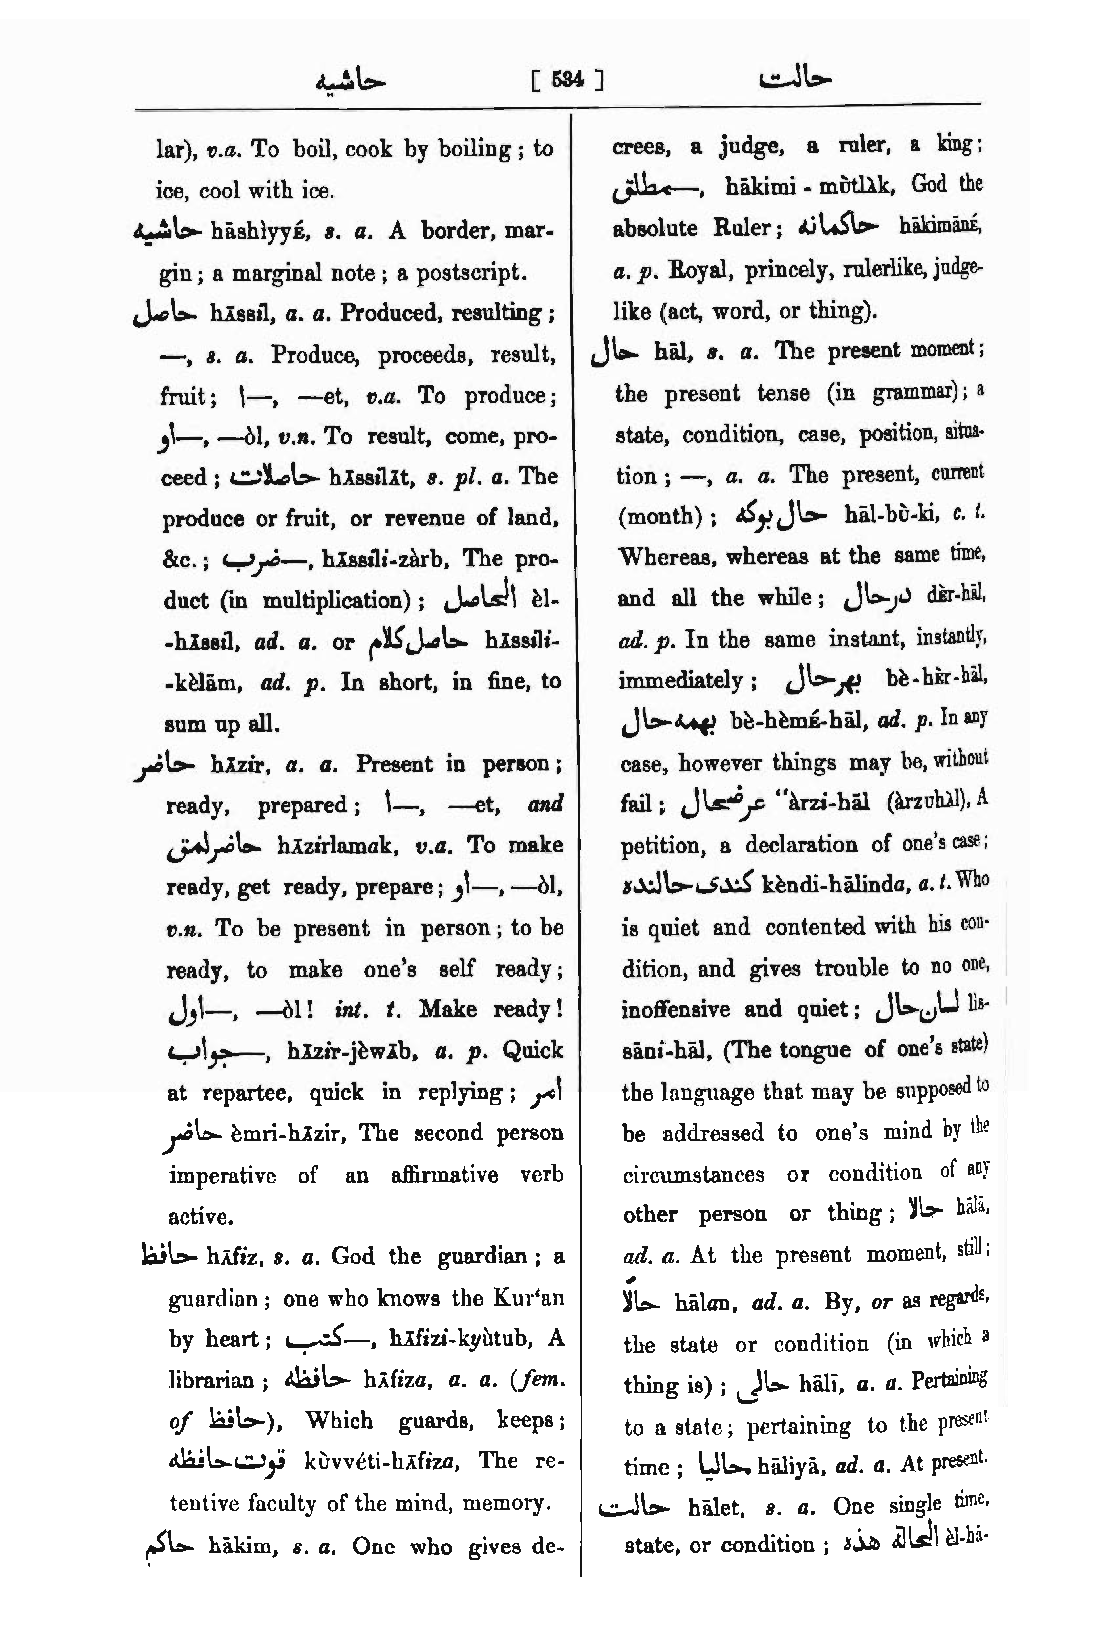 حاشیه [ 534 ] حالت
lar), v.a. To boil, cook by boiling; to
ice, cool with ice.
حاشیه hāshìyyÉ, s. a. A border, mar-
gin; a marginal note; a postscript.
حاصل hĀssĭl, a. a. Produced, resulting;
—, s. a. Produce, proceeds, result,
fruit; ا—, —et, v.a. To produce;
او—, —òl, v.n. To result, come, pro-
ceed; حاصلات hĀssĭlĀt, s. pl. a. The
produce or fruit, or revenue of land,
&c.; ضرب—, hĀssĭli-zàrb, The pro-
duct (in multiplication); الحاصل èl-
-hĀssĭl, ad. a. or حاصل کلام hĀssĭli-
-kèlām, ad. p. In short, in fine, to
sum up all.
حاضر hĀzir, a. a. Present in person;
ready, prepared; ا—, —et, and
حاضرلمق hĀzirlamak, v.a. To make
ready, get ready, prepare; او—, —òl,
v.n. To be present in person; to be
ready, to make one's self ready;
اول—, —òl! int. t. Make ready!
جواب—, hĀzir-jèwĀb, a. p. Quick
at repartee, quick in replying; امر
حاضر èmri-hĀzir, The second person
imperative of an affirmative verb
active.
حافظ hĀfiz, s. a. God the guardian; a
guardian; one who knows the Kur‘an
by heart; کتب—, hĀfizi-kyùtub, A
librarian; حافظه hĀfiza, a. a. (fem.
of حافظ), Which guards, keeps;
قوت حافظه kùvvéti-hĀfiza, The re-
tentive faculty of the mind, memory.
حاکم hākim, s. a. One who gives de-
crees, a judge, a ruler, a king;
مطلق—, hākimi-mùtlàk, God the
absolute Ruler; حاکمانه hākimānÉ,
a. p. Royal, princely, rulerlike, judge-
like (act, word, or thing).
حال hāl, s. a. The present moment;
the present tense (in grammar); a
state, condition, case, position, situa-
tion; —, a. a. The present, current
(month); حال بوکه hāl-bù-ki, c. t.
Whereas, whereas at the same time,
and all the while; درحال dèr-hāl,
ad. p. In the same instant, instantly,
immediately; بهرحال bè-hèr-hāl,
بهمه حال bè-hèmÉ-hāl, ad. p. In any
case, however things may be, without
fail; عرضحال “àrzi-hāl (àrzuhàl), A
petition, a declaration of one's case;
کندی حالنده kèndi-hālinda, a. t. Who
is quiet and contented with his con-
dition, and gives trouble to no one,
inoffensive and quiet; لسان حال lis-
sāni-hāl, (The tongue of one's state)
the language that may be supposed to
be addressed to one's mind by the
circumstances or condition of any
other person or thing; حالا hālā,
ad. a. At the present moment, still;
حالاً hālan, ad. a. By, or as regards,
the state or condition (in which a
thing is); حالی hālī, a. a. Pertaining
to a state; pertaining to the present
time; حالیا hāliyā, ad. a. At present.
حالت hālet, s. a. One single time,
state, or condition; الحالة هذه èl-hā-